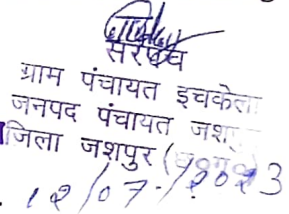 सरपंच
ग्राम पंचायत इचकेला
जनपद पंचायत जशपुर
जिला जशपुर (छ०ग०)
12/07/2023